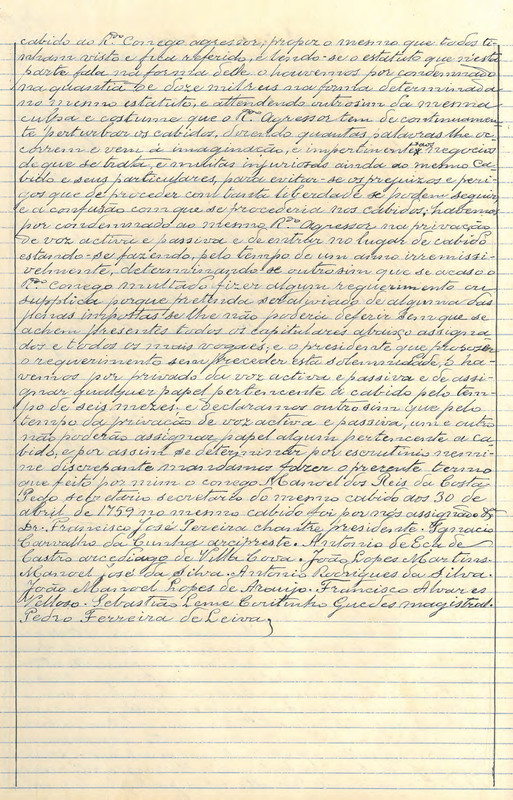 cabido ao R.do Conego agressor, propor o mesmo que todos ti-
nham visto e fica referido, e lendo-se o estatuto que n'esta
parte fala na forma delle o houvemos por condemnado
na quantia de doze mil reis na forma determinada
no mesmo estatuto, e attendendo outrosim da mesma
culpa e costume que o R.do Agressor tem de continuamen-
te perturbar os cabidos, dizendo quantas palavras lhe oc-
correm e vem á imaginação, e impertinentes aos negocios
de que se trata, e muitas injuriosas ainda ao mesmo Ca-
bido e seus particulares, para evitar-se os prejuizos e peri-
gos que de proceder com tanta liberdade se podem seguir
e a confusão com que se procederia nos cabidos; habemos
por condemnado ao mesmo R.do Agressor na privação
de voz activa e passiva e de entrar no lugar de cabido
estando-se fazendo, pelo tempo de um anno irremissi-
velmente, determinando-se outrosim que se acaso o
R.do conego multado fizer algum requerimento ou
supplica porque pretenda ser aliviado de alguma das
penas impostas se lhe não poderia deferir sem que se
achem presentes todos os capitulares abaixo assigna-
dos e todos os mais vogaes; e o presidente que propozer
o requerimento sem preceder esta solemnidade, o ha-
vemos por privado da voz activa e passiva e de assi-
gnar qualquer papel pertencente a cabido pelo tem-
po de seis mezes. e declaramos outrosim que pelo
tempo da privação de voz activa e passiva, um e outro
não poderão assignar papel algum pertencente a ca-
bido, e por assim se determinar por escrutinio nemi-
ne discrepante mandamos fazer o prezente termo
que feito por mim o conego Manoel dos Reis da Costa
Pego secretario secretario do mesmo cabido aos 30 de
abril de 1759 no mesmo cabido foi por nós assignado
Dr. Francisco José Pereira chantre presidente. Ignacio
Carvalho da Cunha arcipreste. Antonio de Eça de
Castro arcediago de Villa Cova. João Lopes Martins.
Manoel José da Silva. Antonio Rodrigues da Silva.
João Manoel Lopes de Araujo. Francisco Alvares
Velloso. Sebastião Leme Coutinho Guedes magistral.
Pedro Ferreira de Leiva